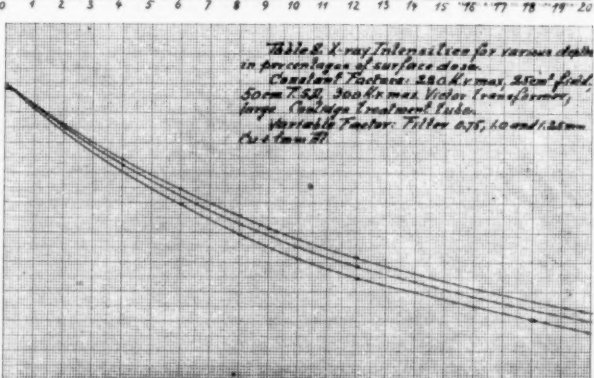 0 1 2 3 4 5 6 7 8 9 10 11 12 13 14 15 16 17 18 19 20
Table 8. X-ray Intensities for various depths
in percentages of surface dose.
Constant Factors: 280 Kv max, 25cm² field,
50cm F.S.D., 300 Kv max Victor Transformer,
large Coolidge Treatment Tube.
Variable Factor: Filter 0.75, 1.0 and 1.25mm
Cu + 1mm Al